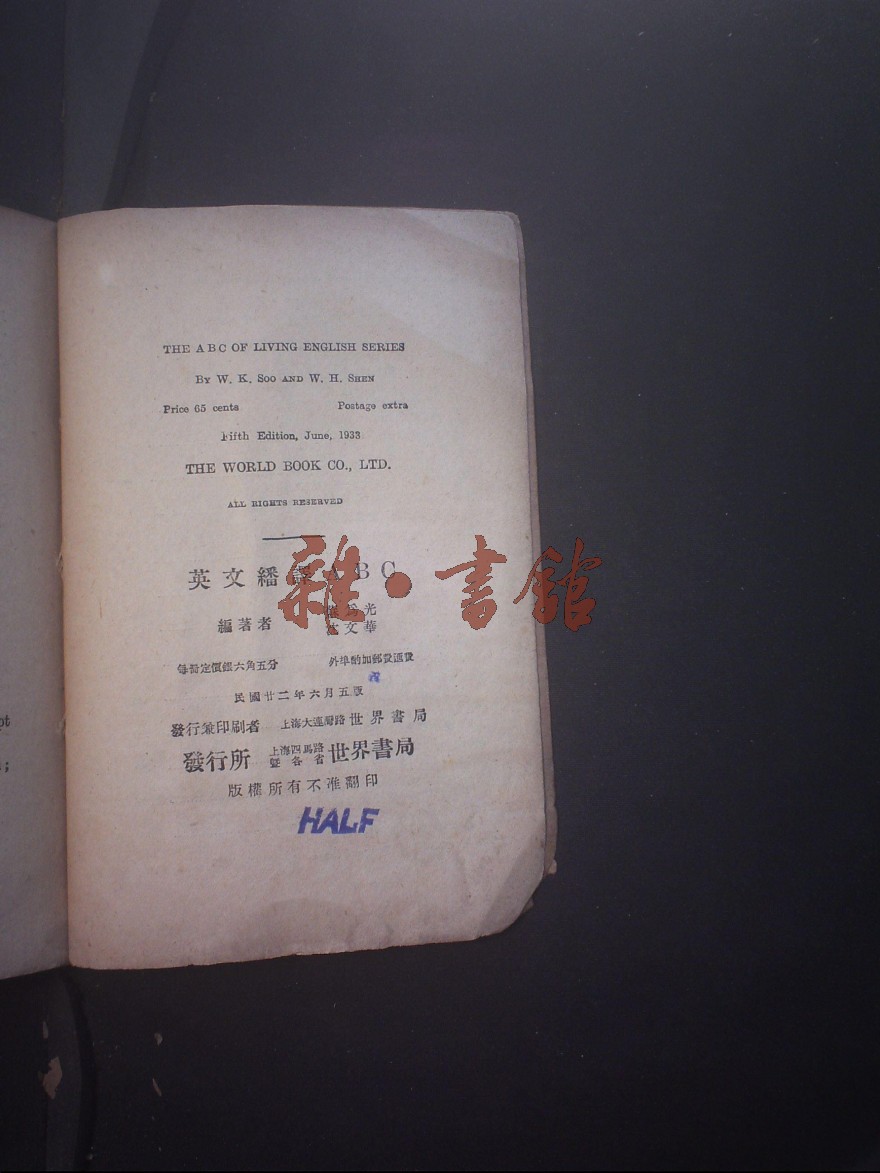 THE A B C OF LIVING ENGLISH SERIES
BY W. K. SOO AND W. H. SHEN
Price 65 cents Postage extra
Fifth Edition, June, 1933
THE WORLD BOOK CO., LTD.
ALL RIGHTS RESERVED
雜·書館
英文繙譯ABC
編著者 光
沈文華
每冊定價銀六角五分 外埠酌加郵費匯費
民國廿二年六月五版
發行兼印刷者 上海大連灣路 世界書局
發行所 上海四馬路 暨各省 世界書局
版權所有不准翻印
HALF
pt
;